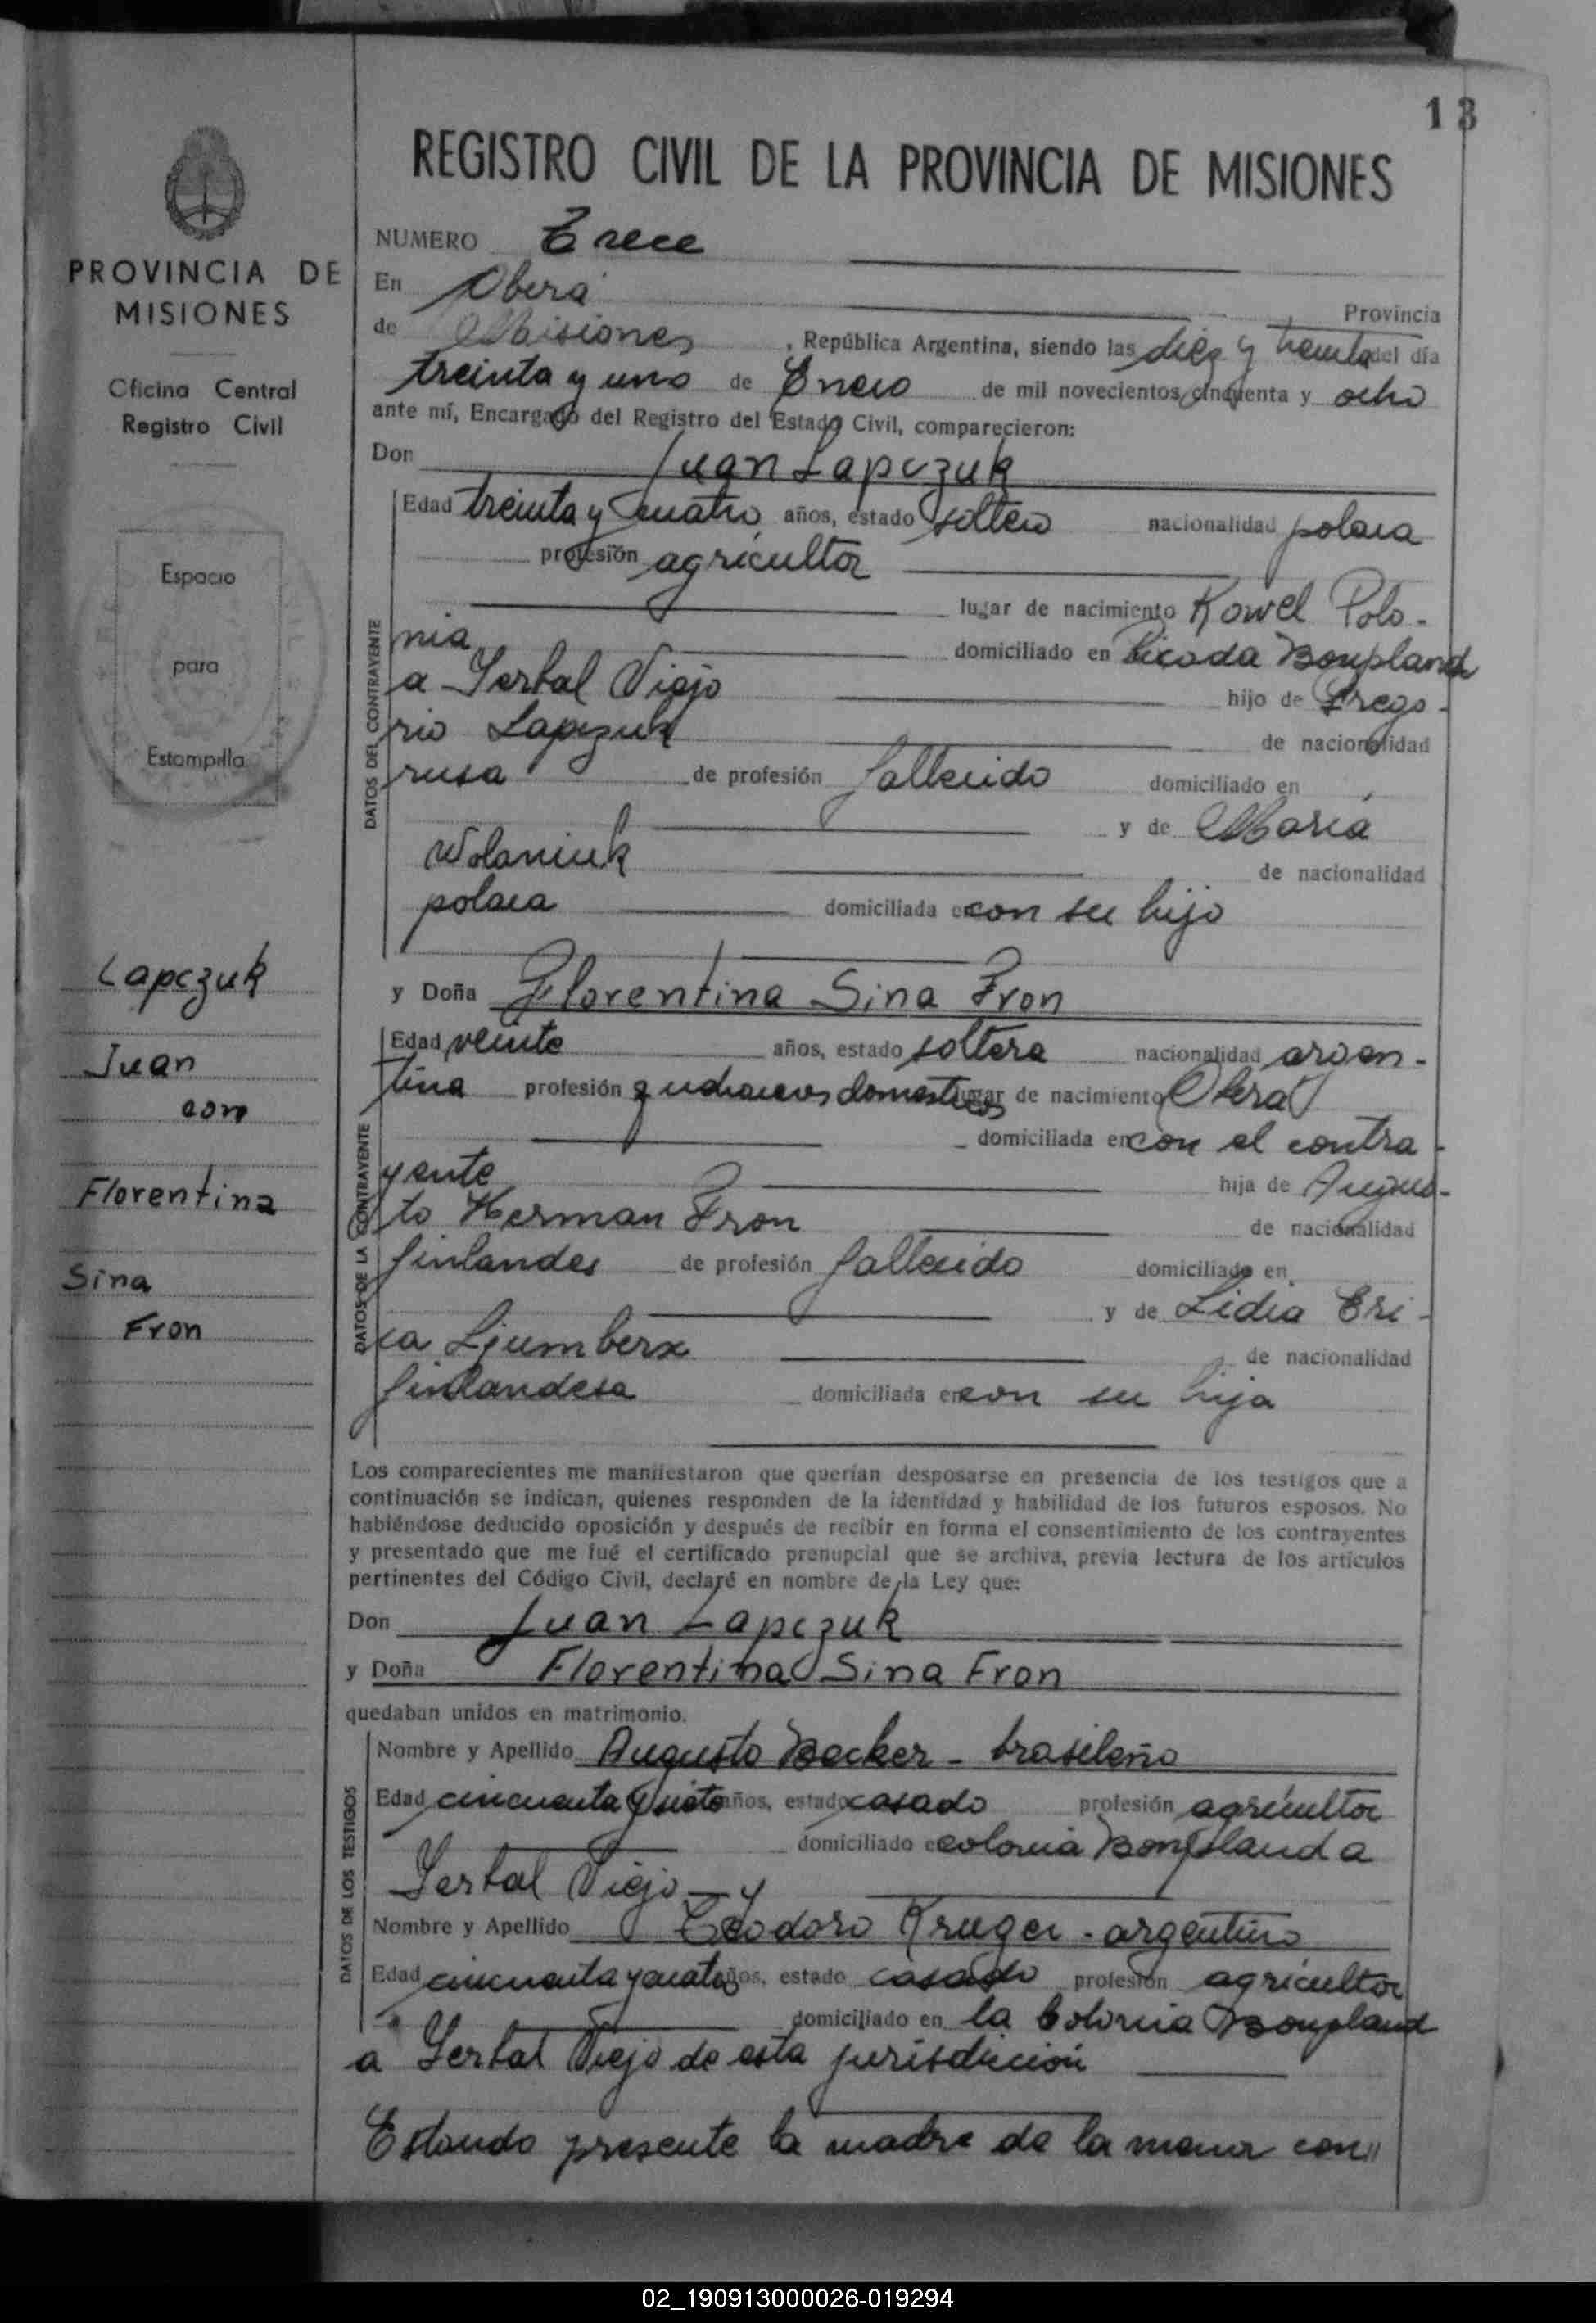 13
REGISTRO CIVIL DE LA PROVINCIA DE MISIONES
PROVINCIA DE
MISIONES
Oficina Central
Registro Civil
Espacio
para
Estampilla
Lapczuk
Juan
con
Florentina
Sina
Fron
NUMERO Trece
En Oberá Provincia
de Misiones, República Argentina, siendo las diez y treinta del día
treinta y uno de Enero de mil novecientos cincuenta y ocho
ante mí, Encargado del Registro del Estado Civil, comparecieron:
Don Juan Lapczuk
DATOS DEL CONTRAYENTE
Edad treinta y cuatro años, estado soltero nacionalidad polaca
profesión agricultor
lugar de nacimiento Kowel Polo-
nia domiciliado en Picada Bonpland
a Yerbal Viejo hijo de Grego-
rio Lapczuk de nacionalidad
rusa de profesión fallecido domiciliado en
y de María
Wolaniuk de nacionalidad
polaca domiciliada en con su hijo
y Doña Florentina Sina Fron
DATOS DE LA CONTRAYENTE
Edad veinte años, estado soltera nacionalidad argen-
tina profesión quehaceres domesticos lugar de nacimiento Oberá
domiciliada en con el contra-
yente hija de Augus-
to Herman Fron de nacionalidad
finlandes de profesión fallecido domiciliado en
y de Lidia Eri-
ca Ljumberx de nacionalidad
finlandesa domiciliada en con su hija
Los comparecientes me manifestaron que querían desposarse en presencia de los testigos que a
continuación se indican, quienes responden de la identidad y habilidad de los futuros esposos. No
habiéndose deducido oposición y después de recibir en forma el consentimiento de los contrayentes
y presentado que me fué el certificado prenupcial que se archiva, previa lectura de los artículos
pertinentes del Código Civil, declaré en nombre de la Ley que:
Don Juan Lapczuk
y Doña Florentina Sina Fron
quedaban unidos en matrimonio.
DATOS DE LOS TESTIGOS
Nombre y Apellido Augusto Becker - brasileño
Edad cincuenta y siete años, estado casado profesión agricultor
domiciliado en colonia Bonpland a
Yerbal Viejo - y
Nombre y Apellido Teodoro Kruger - argentino
Edad cincuenta y cuatro años, estado casado profesión agricultor
domiciliado en la Colonia Bonpland
a Yerbal Viejo de esta jurisdiccion
Estando presente la madre de la menor con"
02_190913000026-019294